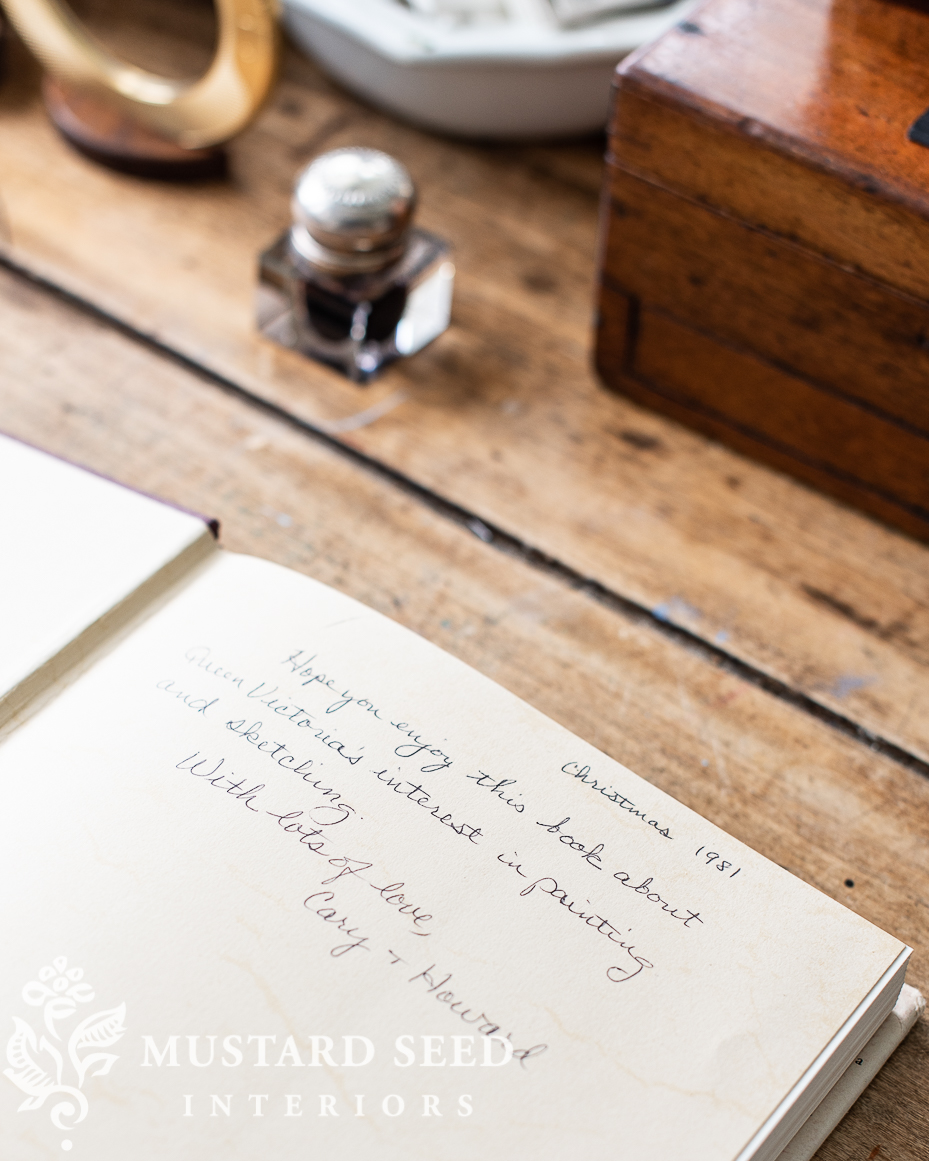 Christmas 1981
Hope you enjoy this book about
Queen Victoria's interest in painting
and sketching.
With lots of love,
Cary + Howard
MUSTARD SEED
INTERIORS